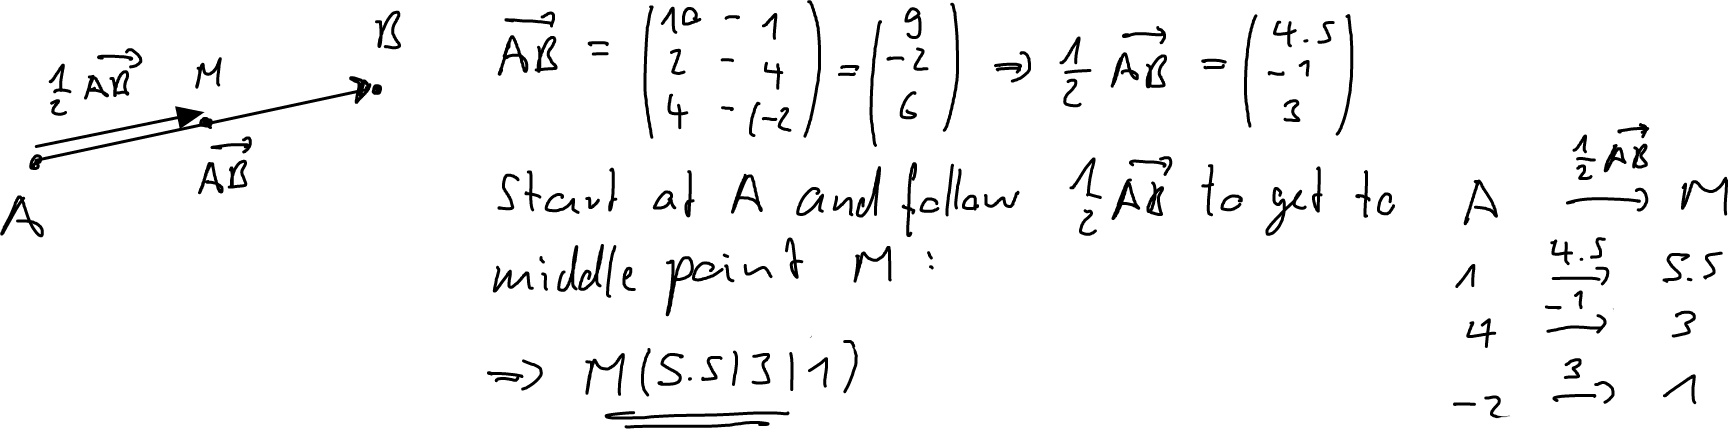 ½ AB→ M B
AB→
A
AB→ = (10 - 1, 2 - 4, 4 - (-2) = (9, -2, 6) ⇒ ½ AB→ = (4.5, -1, 3)
Start at A and follow ½ AB→ to get to
middle point M :
⇒ M(5.5|3|1)
A ½ AB→ → M
1 4.5 → 5.5
4 -1 → 3
-2 3 → 1